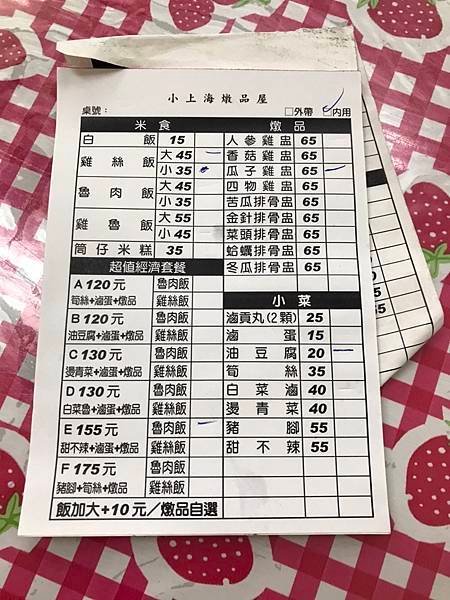 小上海燉品屋
桌號： □外帶 □內用
米食
白飯 15
雞絲飯 大 45
小 35
魯肉飯 大 45
小 35
雞魯飯 大 55
小 45
筒仔米糕 35
超值經濟套餐
A 120元 魯肉飯
筍絲+滷蛋+燉品 雞絲飯
B 120元 魯肉飯
油豆腐+滷蛋+燉品 雞絲飯
C 130元 魯肉飯
燙青菜+滷蛋+燉品 雞絲飯
D 130元 魯肉飯
白菜魯+滷蛋+燉品 雞絲飯
E 155元 魯肉飯
甜不辣+滷蛋+燉品 雞絲飯
F 175元 魯肉飯
豬腳+筍絲+燉品 雞絲飯
飯加大+10元／燉品自選
燉品
人參雞盅 65
香菇雞盅 65
瓜子雞盅 65
四物雞盅 65
苦瓜排骨盅 65
金針排骨盅 65
菜頭排骨盅 65
蛤蠣排骨盅 65
冬瓜排骨盅 65
小菜
滷貢丸(2顆) 25
滷蛋 15
油豆腐 20
筍絲 35
白菜滷 40
燙青菜 40
豬腳 55
甜不辣 55